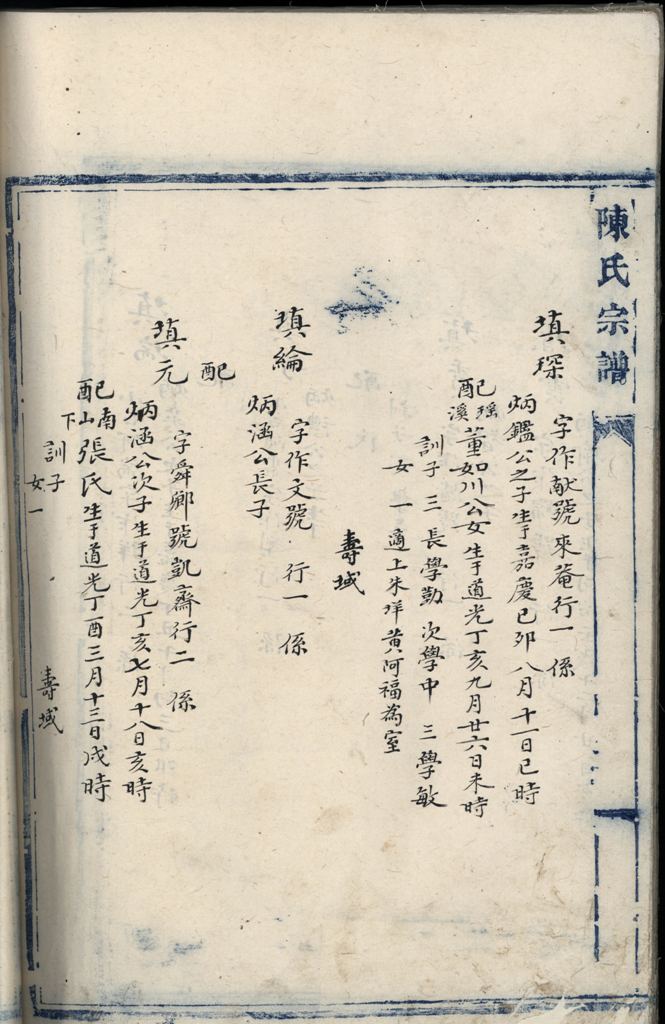 陳氏宗譜
填琛
字作献號來菴行一 係
炳鑑公之子生于嘉慶己卯八月十一日巳時
配瑶溪董如川公女生于道光丁亥九月廿六日未時
訓子三 長學勤 次學中 三學敏
女一 適上朱垟黃阿福為室
壽域
填綸
字作文號 行一 係
炳涵公長子
配
填元
字舜鄉號凱齋行二 係
炳涵公次子生于道光丁亥七月十八日亥時
配南山下張氏生于道光丁酉三月十三日戌時
訓子
女一
壽域